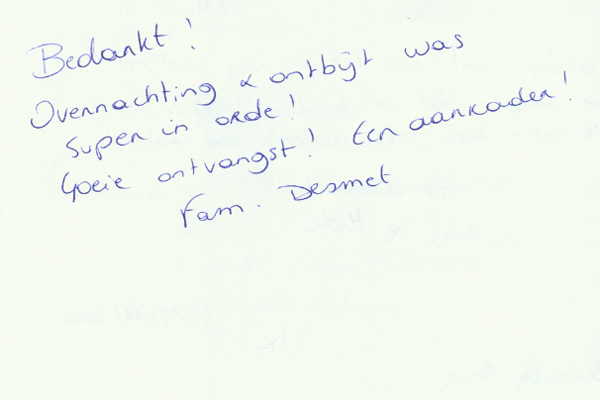 Bedankt!
Overnachting & ontbijt was
super in orde!
Goeie ontvangst! Een aanrader!
Fam. Desmet